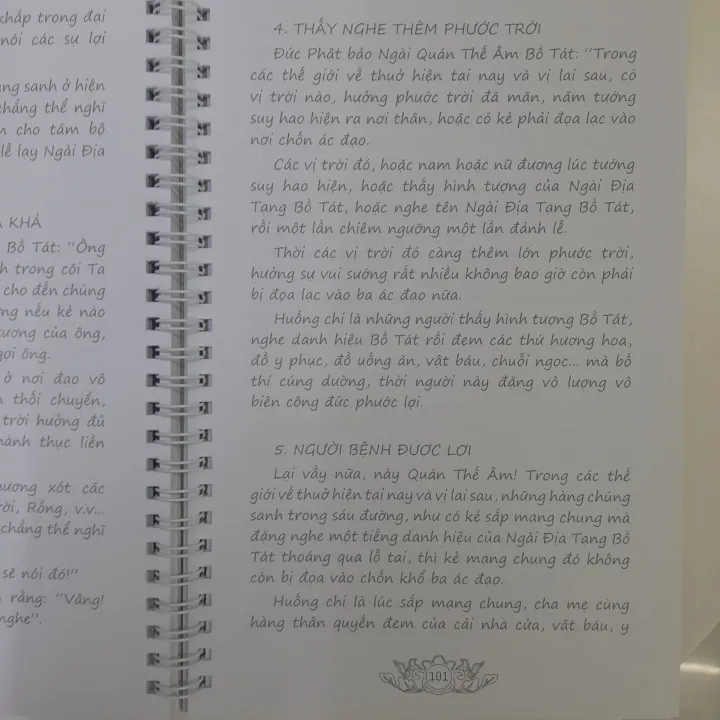 khắp trong đại
nói các sự lợi
ng sanh ở hiện
chẳng thể nghĩ
n cho tám bộ
lễ lạy Ngài Địa
KHẢ
Bồ Tát: "Ông
h trong cõi Ta
cho đến chúng
ng nếu kẻ nào
tượng của ông,
gợi ông.
ở nơi đạo vô
thối chuyển,
trời hưởng đủ
hành thục liền
ương xót các
rời, Rồng, v.v...
chẳng thể nghĩ
sẽ nói đó!"
rằng: "Vâng!
nghe".
4. THẤY NGHE THÊM PHƯỚC TRỜI
Đức Phật bảo Ngài Quán Thế Âm Bồ Tát: "Trong
các thế giới về thuở hiện tại nay và vị lai sau, có
vị trời nào, hưởng phước trời đã mãn, năm tướng
suy hao hiện ra nơi thân, hoặc có kẻ phải đọa lạc vào
nơi chốn ác đạo.
Các vị trời đó, hoặc nam hoặc nữ đương lúc tướng
suy hao hiện, hoặc thấy hình tượng của Ngài Địa
Tạng Bồ Tát, hoặc nghe tên Ngài Địa Tạng Bồ Tát,
rồi một lần chiêm ngưỡng một lần đảnh lễ.
Thời các vị trời đó càng thêm lớn phước trời,
hưởng sự vui sướng rất nhiều không bao giờ còn phải
bị đọa lạc vào ba ác đạo nữa.
Huống chi là những người thấy hình tượng Bồ Tát,
nghe danh hiệu Bồ Tát rồi đem các thứ hương hoa,
đồ y phục, đồ uống ăn, vật báu, chuỗi ngọc... mà bố
thí cúng dường, thời người này đặng vô lượng vô
biên công đức phước lợi.
5. NGƯỜI BỆNH ĐƯỢC LỢI
Lại vầy nữa, này Quán Thế Âm! Trong các thế
giới về thuở hiện tại nay và vị lai sau, những hàng chúng
sanh trong sáu đường, như có kẻ sắp mạng chung mà
đặng nghe một tiếng danh hiệu của Ngài Địa Tạng Bồ
Tát thoáng qua lỗ tai, thì kẻ mạng chung đó không
còn bị đọa vào chốn khổ ba ác đạo.
Huống chi là lúc sắp mạng chung, cha mẹ cùng
hàng thân quyến đem của cải nhà cửa, vật báu, y
101